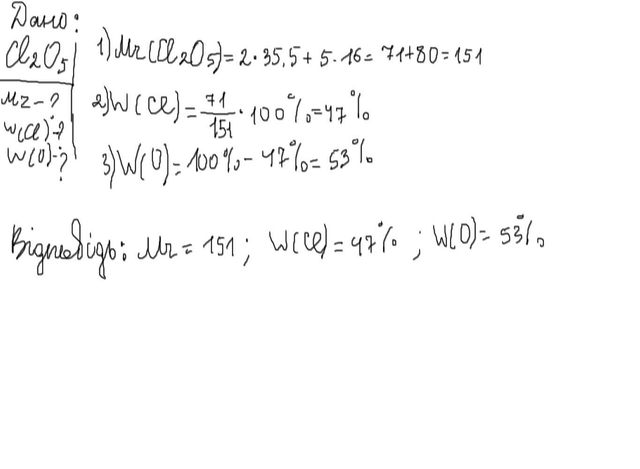 Дано:
Cl₂O₅
Mr-?
W(Cl)-?
W(O)-?
1) Mr(Cl₂O₅)=2·35,5+5·16=71+80=151
2) W(Cl)=71/151·100%=47%
3) W(O)=100%-47%=53%
Відповідь: Mr=151; W(Cl)=47%; W(O)=53%